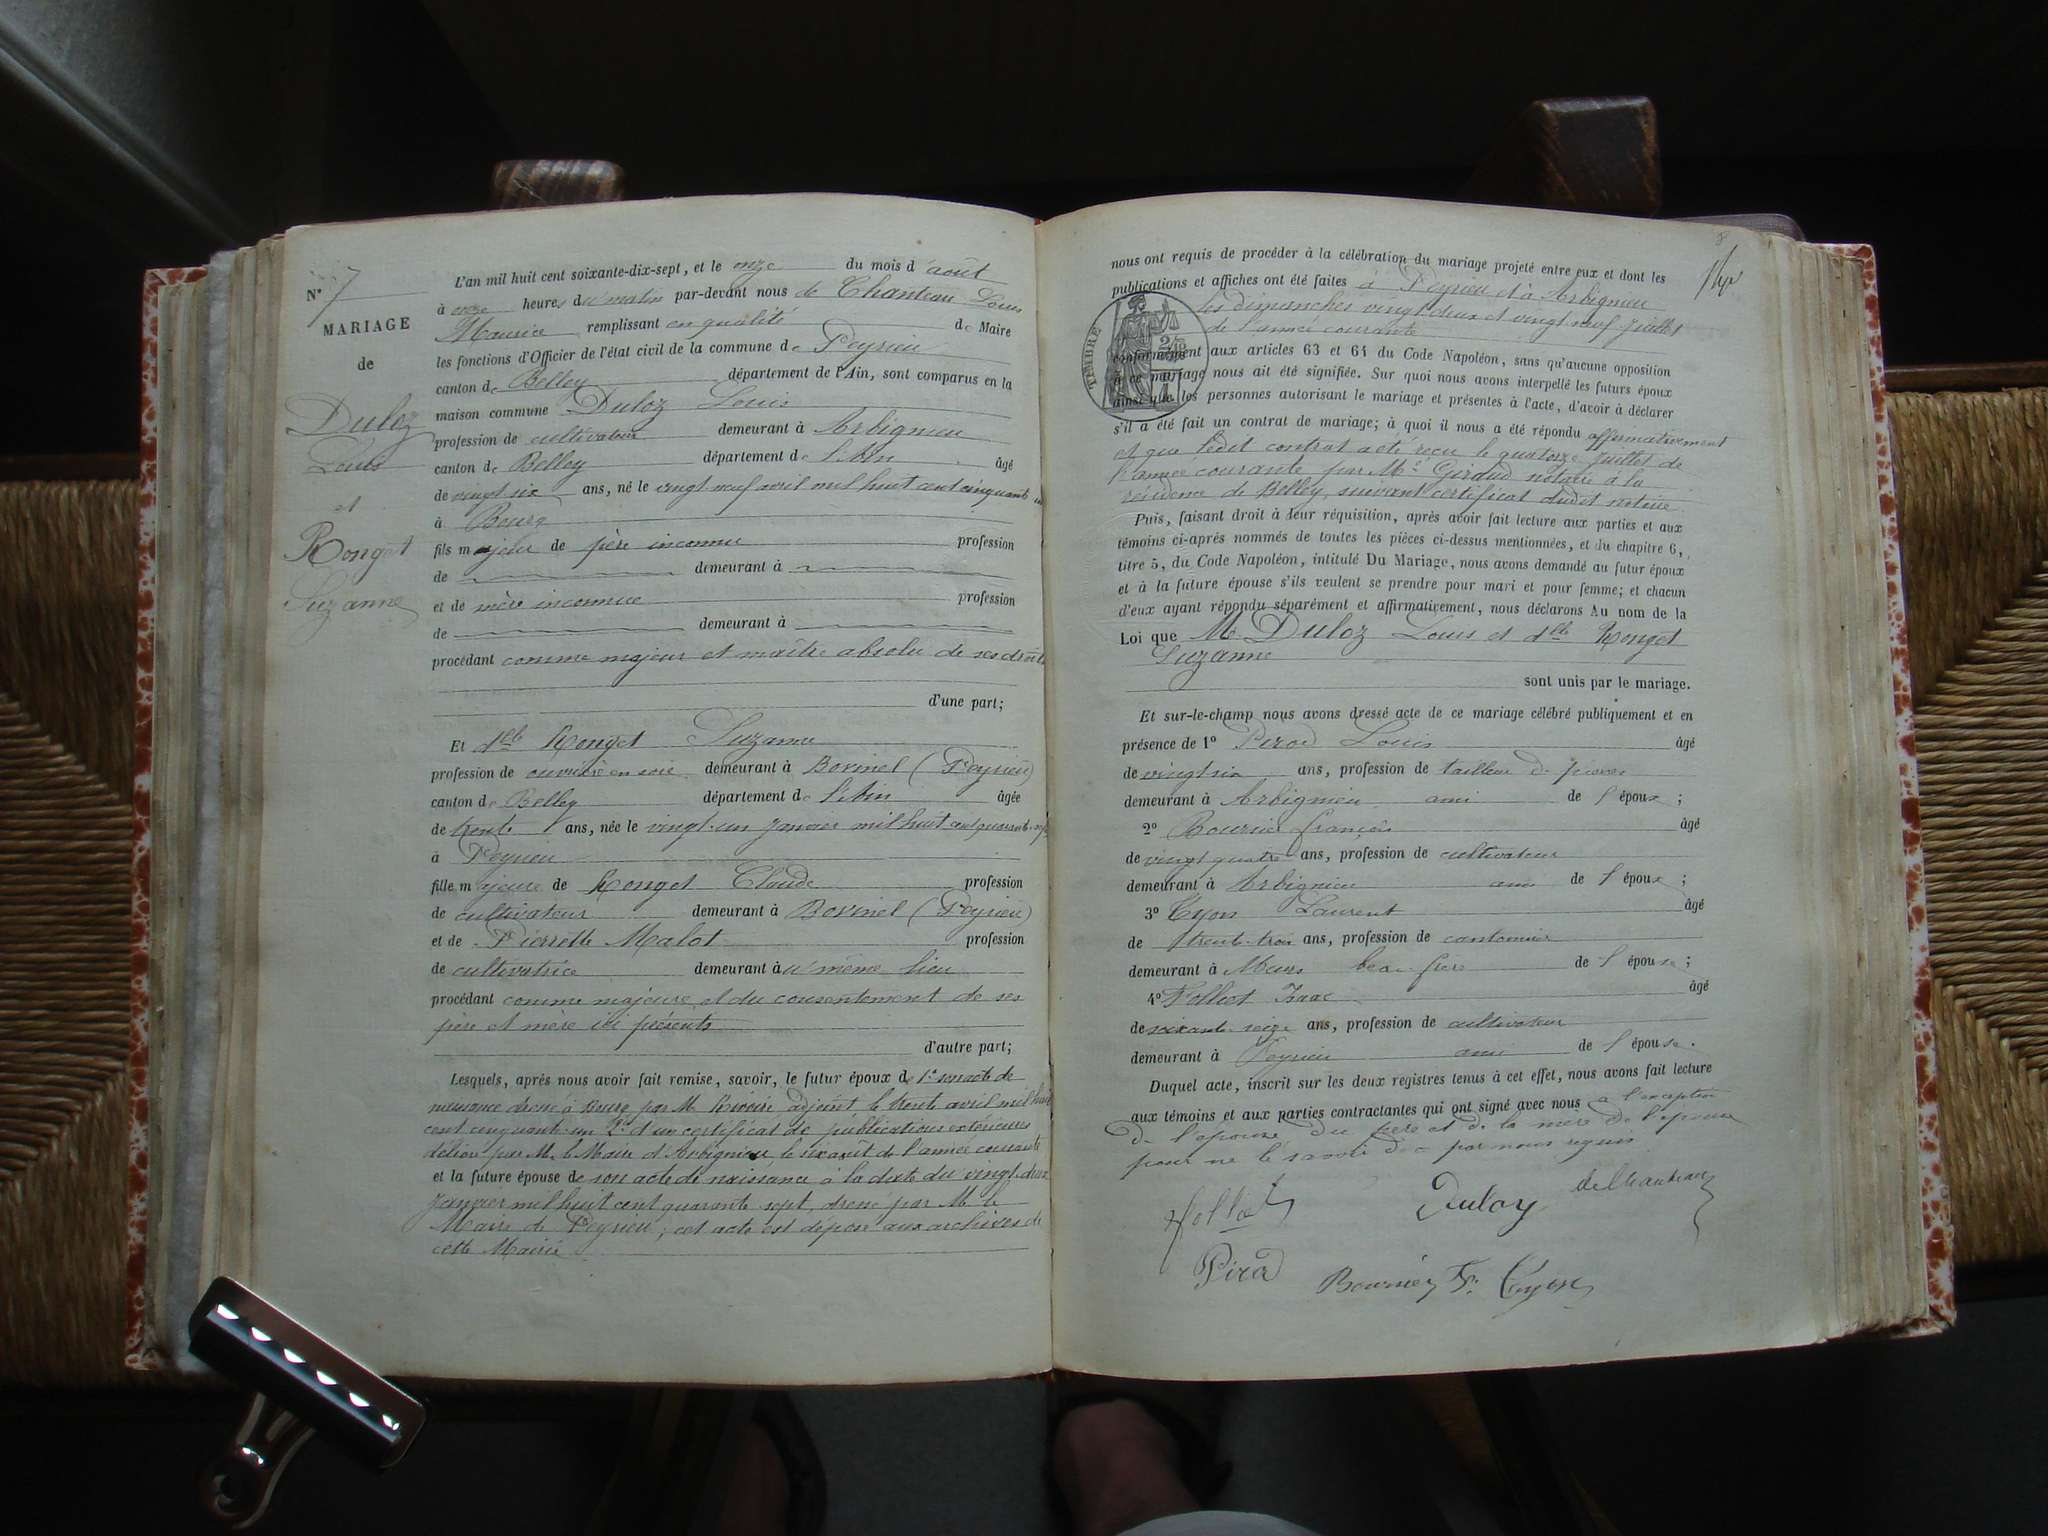 N° 7
MARIAGE
de
Duloz
Louis
et
Ronget
Suzanne
L'an mil huit cent soixante-dix-sept, et le onze du mois d'août
à onze heures du matin par-devant nous de Chanteau Louis
Maurice remplissant en qualité de Maire
les fonctions d'Officier de l'état civil de la commune de Peyrieu
canton de Belley département de l'Ain, sont comparus en la
maison commune Duloz Louis
profession de cultivateur demeurant à Arbignieu
canton de Belley département de l'Ain âgé
de vingt six ans, né le vingt neuf avril mil huit cent cinquante un
à Bourg
fils majeur de père inconnu profession
de demeurant à
et de mère inconnue profession
de demeurant à
procédant comme majeur et maître absolu de ses droits
d'une part;
Et dlle Ronget Suzanne
profession de ouvrière en soie demeurant à Borinel (Peyrieu)
canton de Belley département de l'Ain âgée
de trente ans, née le vingt-un Janvier mil huit cent quarante sept
à Peyrieu
fille majeure de Ronget Claude profession
de cultivateur demeurant à Borinel (Peyrieu)
et de Pierrette Malot profession
de cultivatrice demeurant au même lieu
procédant comme majeure et du consentement de ses
père et mère ici présents
d'autre part;
Lesquels, après nous avoir fait remise, savoir, le futur époux de 1° son acte de
naissance dressé à Bourg par M. Rivoire adjoint le trente avril mil huit
cent cinquante-un 2° d'un certificat de publications extérieures
délivré par M. le Maire d'Arbignieu le six août de l'année courante
et la future épouse de son acte de naissance à la date du vingt-deux
Janvier mil huit cent quarante sept, dressé par M. le
Maire de Peyrieu, cet acte est déposé aux archives de
cette Mairie
nous ont requis de procéder à la célébration du mariage projeté entre eux et dont les
publications et affiches ont été faites à Peyrieu et à Arbignieu
les dimanches vingt-deux et vingt neuf Juillet
de l'année courante
TIMBRE
conformément aux articles 63 et 64 du Code Napoléon, sans qu'aucune opposition
à ce mariage nous ait été signifiée. Sur quoi nous avons interpellé les futurs époux
ainsi que les personnes autorisant le mariage et présentes à l'acte, d'avoir à déclarer
s'il a été fait un contrat de mariage; à quoi il nous a été répondu affirmativement
et que ledit contrat a été reçu le quatorze Juillet de
l'année courante par Me Giraud notaire à la
résidence de Belley, suivant certificat dudit notaire.
Puis, faisant droit à leur réquisition, après avoir fait lecture aux parties et aux
témoins ci-après nommés de toutes les pièces ci-dessus mentionnées, et du chapitre 6,
titre 5, du Code Napoléon, intitulé Du Mariage, nous avons demandé au futur époux
et à la future épouse s'ils veulent se prendre pour mari et pour femme; et chacun
d'eux ayant répondu séparément et affirmativement, nous déclarons Au nom de la
Loi que M Duloz Louis et dlle Ronget
Suzanne
sont unis par le mariage.
Et sur-le-champ nous avons dressé acte de ce mariage célébré publiquement et en
présence de 1° Pirod Louis âgé
de vingt six ans, profession de tailleur de pierres
demeurant à Arbignieu ami de l'époux;
2° Bournier françois âgé
de vingt quatre ans, profession de cultivateur
demeurant à Arbignieu ami de l'époux;
3° Cyon Laurent âgé
de trente-trois ans, profession de cantonnier
demeurant à Murs beau-frère de l'épouse;
4° Folliet Isaac âgé
de soixante seize ans, profession de cultivateur
demeurant à Peyrieu ami de l'épouse.
Duquel acte, inscrit sur les deux registres tenus à cet effet, nous avons fait lecture
aux témoins et aux parties contractantes qui ont signé avec nous à l'exception
de l'épouse du père et de la mère de l'épouse
pour ne le savoir de par nous requis
Folliet Duloz de Chanteau
Pirod Bournier F. Cyon